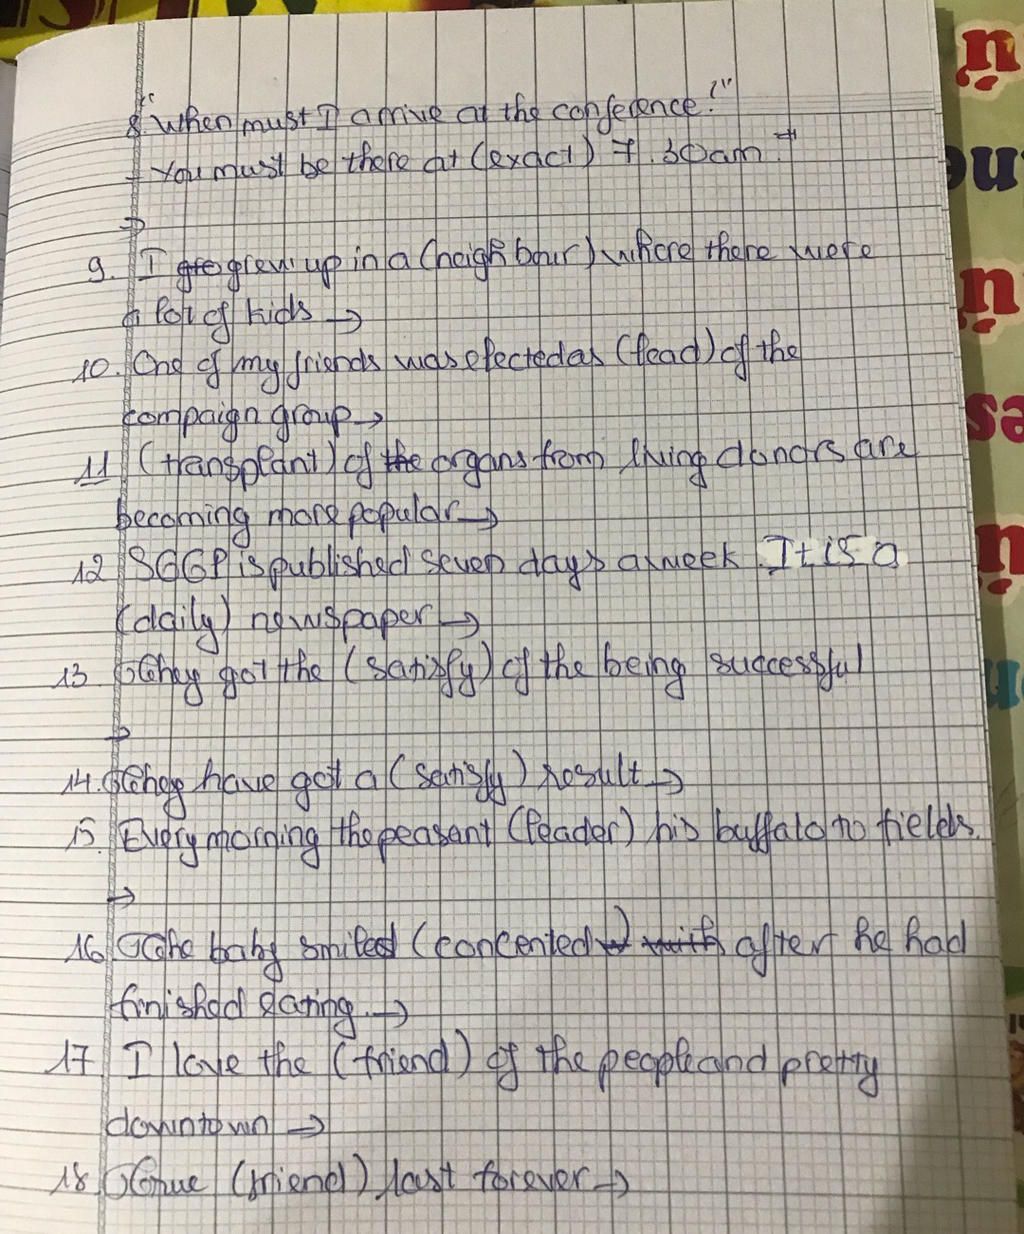 8. "When must I arrive at the conference?"
- You must be there at (exact) 7.30am."
→
9. I gre grew up in a (neighbour) where there were
a lot of kids →
10. One of my friends was elected as (lead) of the
compaign group →
11 (transplant) of the organs from living donors are
becoming more popular →
12 SGGP is published seven days a week. It is a
(daily) newspaper →
13. They got the (satisfy) of the being successful
→
14. They have got a (satisfy) result →
15. Every morning the peasant (leader) his buffalo to fields.
→
16. The baby smiled (concented) with after he had
finished eating. →
17 I love the (friend) of the people and pretty
downtown →
18. True (friend) last forever →
u
ne
u
u
es
u